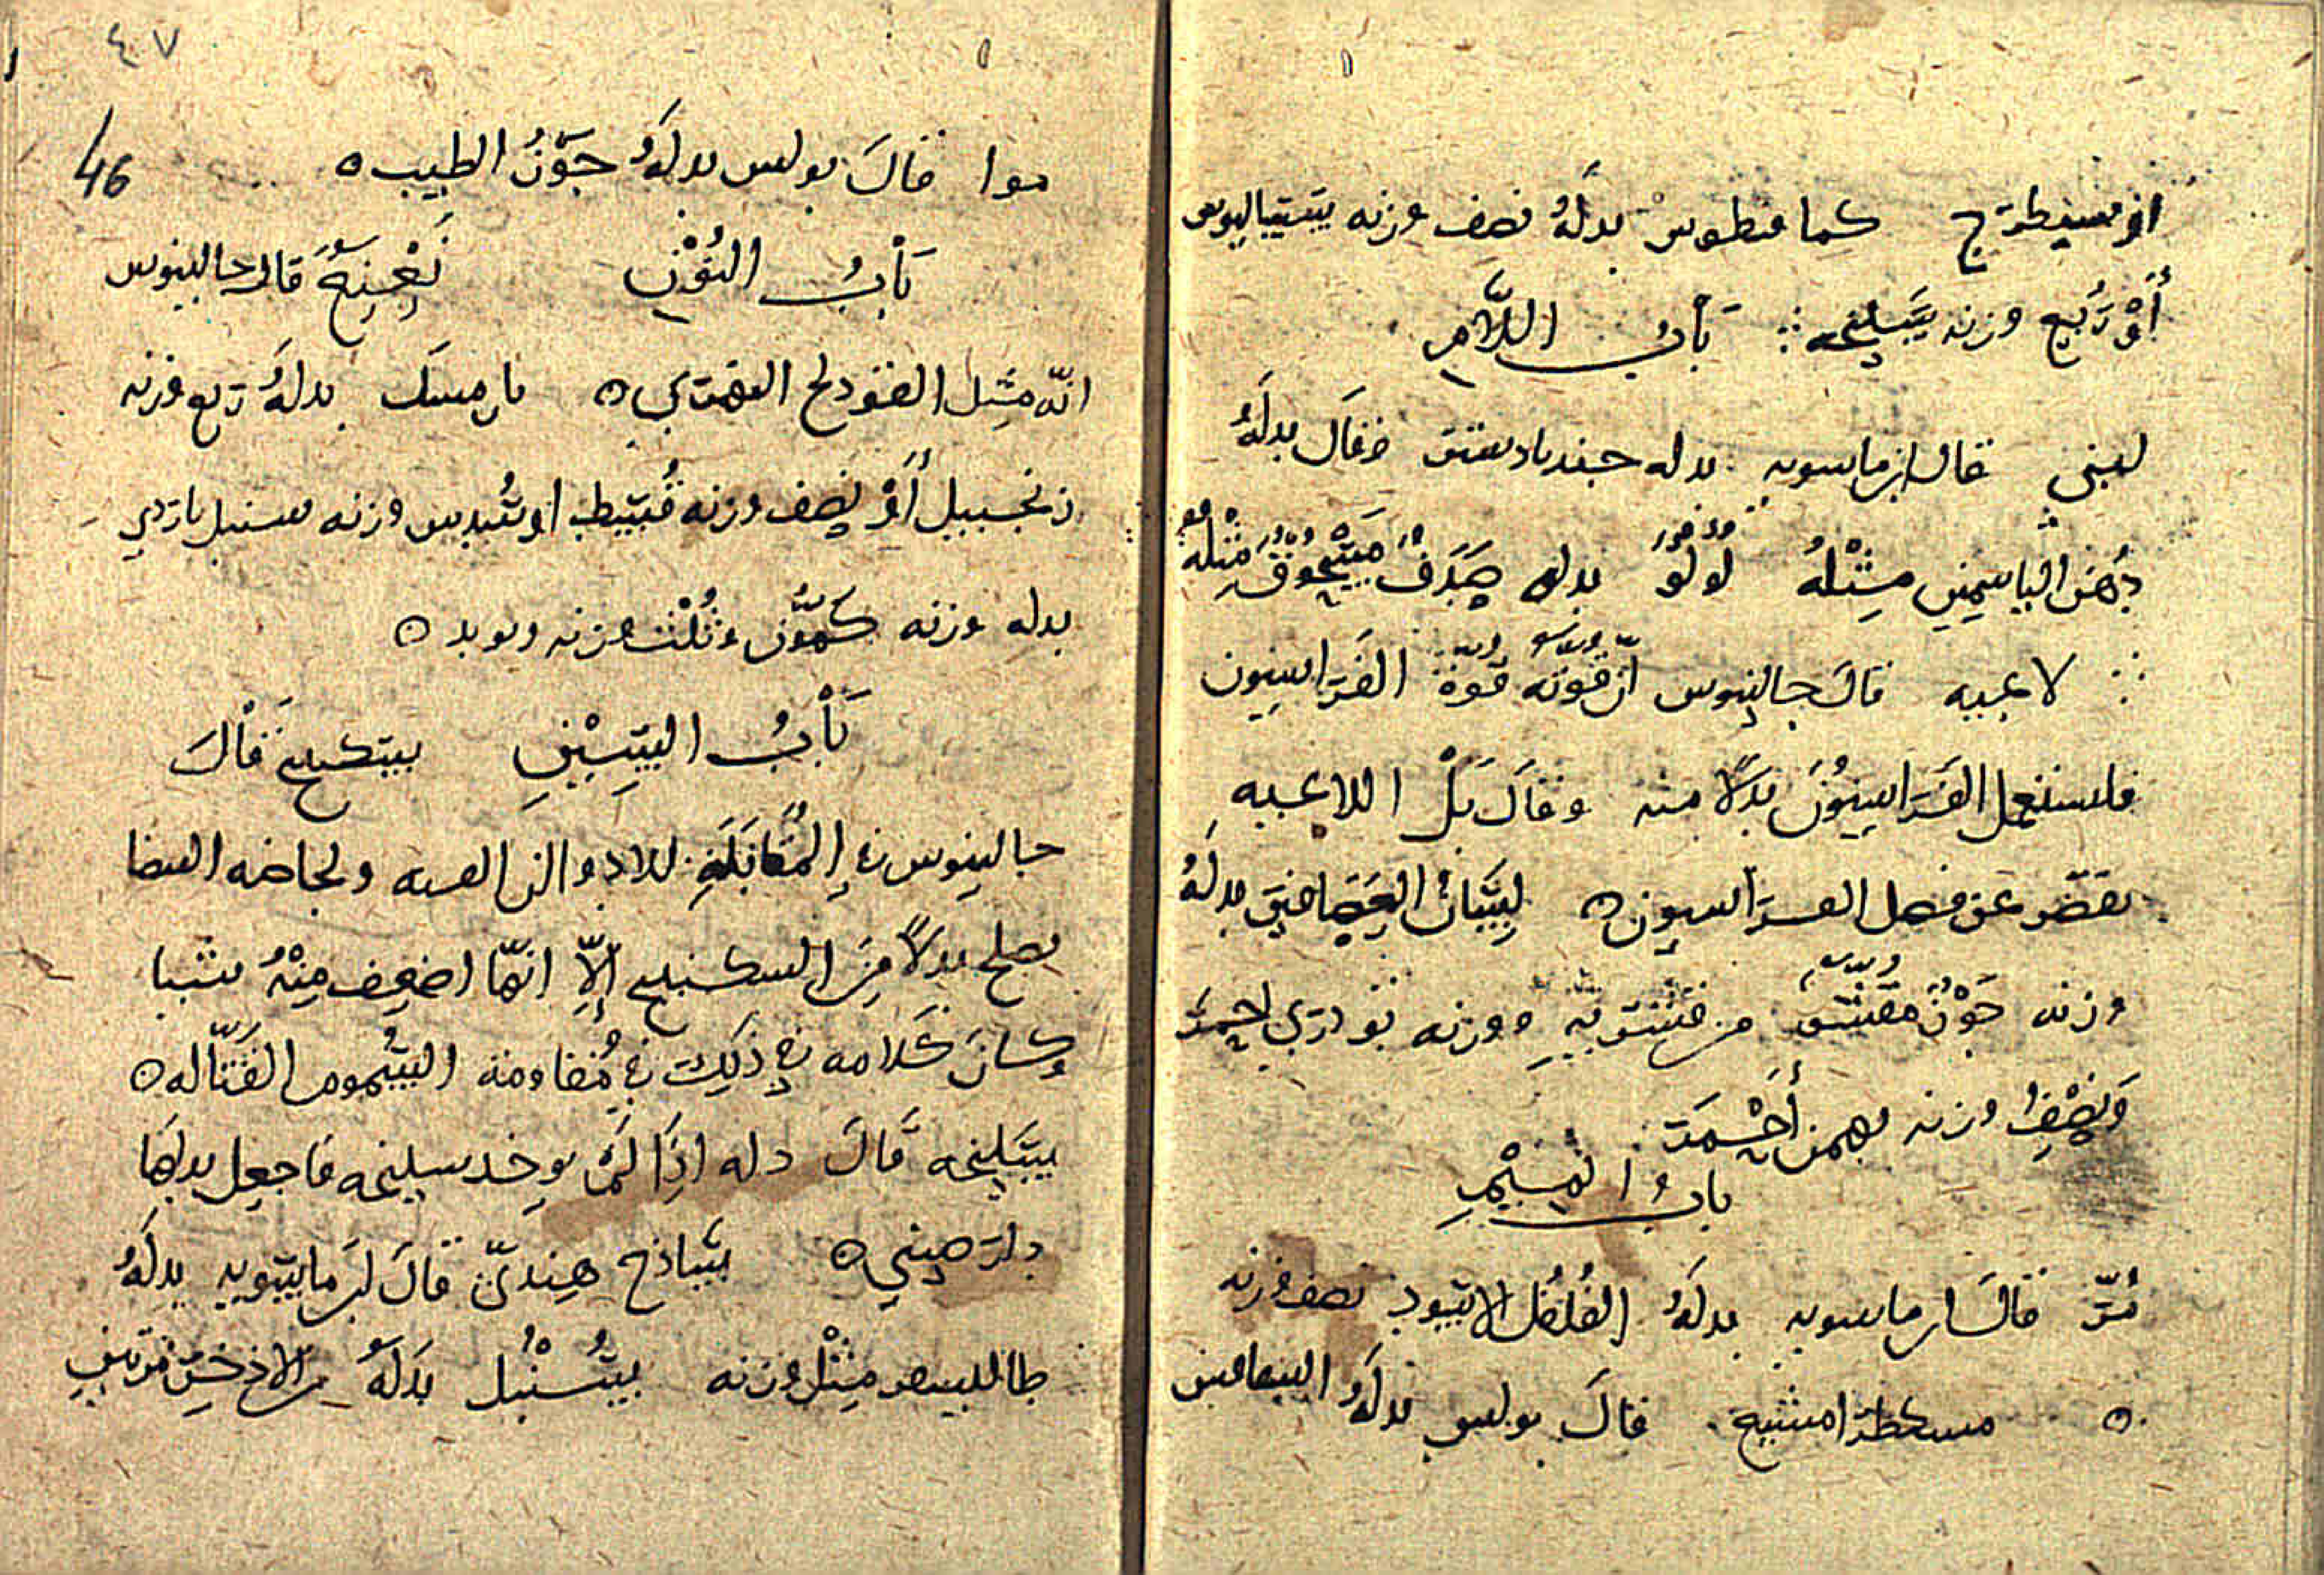 او سيطرج كما فيطوس بدله نصف وزنه سيساليوس
أو ربع وزنه سليخه ∴ باب اللام
لبني قال ابن ماسويه بدله جندبادستر وقال بدله
دهن الياسمين مثله لولو بدله صدف مسحوق مثله
لاعبيه قال جالينوس ان قوته قوة الفراسيون
فليستعمل الفراسيون بدلا منه وقال بل اللاعبيه
تقصر عن فصل الفراسيون ه لسان العصافير بدله
وزنه جوز مقشر من قشريه ووزنه تودري احمر
ونصف وزنه بهمن أحمر
باب الميم
مر قال ابن ماسويه بدله الفلفل الاسود نصف وزنه
ه مسكطرامشيح قال بولس بدله
٤٧
46
موا قال بولس بدله جوز الطيب ه
باب النون قال جالينوس
انه مثل الفودنج النهري ه نارمسك بدله ربع وزنه
زنجبيل أو نصف وزنه قسط او سدس وزنه سنبل ناردين
بدله وزنه كمون وثلث وزنه
باب السين سكبينج قال
جالينوس في المقابلة للادوا
يصلح بدلا من السكبينج إلا انها اضعف منه شيا
وكان كلامه في ذلك في مقاومة السموم القتاله ه
سليخه قال اذا لم يوخد سليخه فاجعل بدلها
دارصيني ه ساذج هندي قال ابن ماسويه بدله
طاليسفر مثل وزنه سنبل بدله من الاذخر